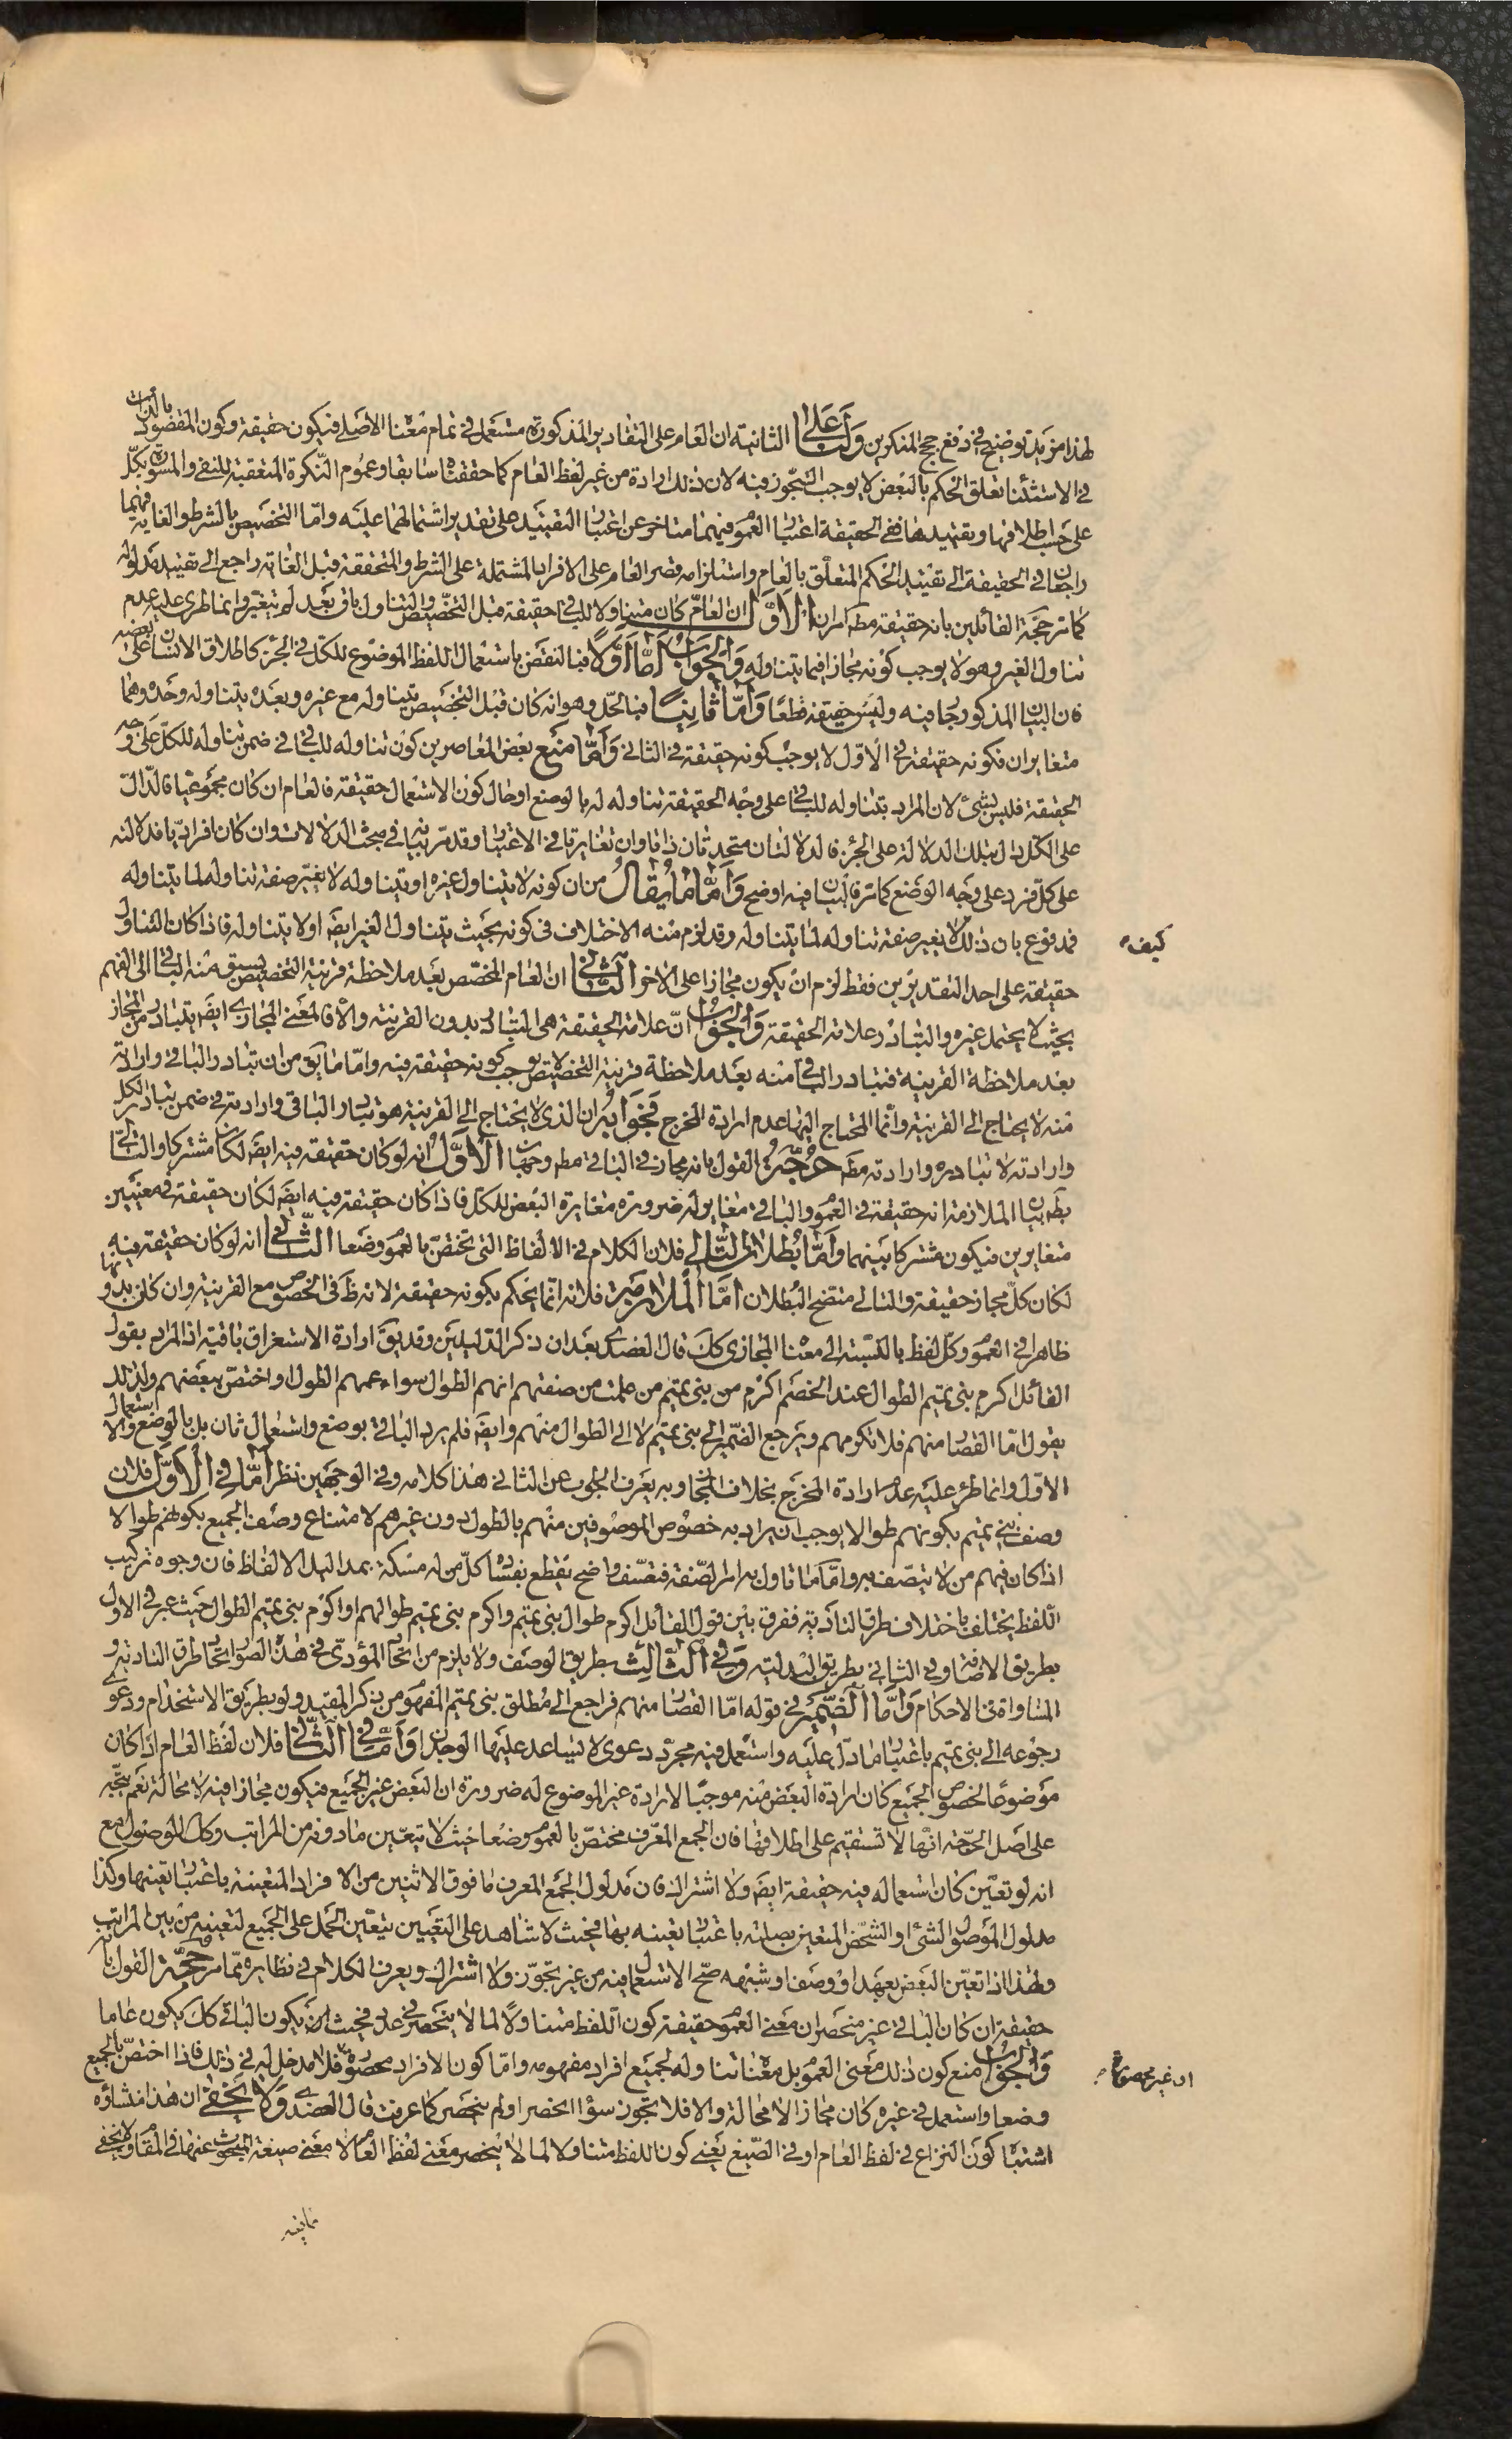 لهذا مزيد توضيح في دفع حجج المنكرين ولنا على الثانية ان العام على التقادير المذكورة مستعمل في تمام معناه الاصلي فيكون حقيقة وكون المقصود بالذات
في الاستثناء تعلق الحكم بالبعض لا يوجب التجوز فيه لان ذلك ارادة من غير لفظ العام كما حققناه سابقا وعموم النكرة المتعقبة للنفي والمسورة بكل
على حسب اطلاقها وتقييدها ففي الحقيقة اعتبار العموم فيهما متاخر عن اعتبار التقييد على تقدير اشتمالهما عليه واما التخصيص بالشرط والغاية فهما
راجعان في الحقيقة الى تقييد الحكم المتعلق بالعام واستلزامه قصر العام على الافراد المشتملة على الشرط والمتحققة قبل الغاية راجع الى تقييد مدلوله
كما مر حجة القائلين بانه حقيقة مطه امران الاول ان العام كان متناولا للباقي حقيقة قبل التخصيص والتناول باق بعد لم يتغير وانما طرى عليه عدم
تناول الغير وهو لا يوجب كونه مجازا فيما يتناوله والجواب اما اولا فبالنقض باستعمال اللفظ الموضوع للكل في الجزء كاطلاق الانسان على بعضه
فان البيان المذكور جار فيه وليس حقيقة قطعا واما ثانيا فبالحل وهو انه كان قبل التخصيص يتناوله مع غيره وبعده يتناوله وحده وهما
متغايران فكونه حقيقة في الاول لا يوجب كونه حقيقة في الثاني واما منع بعض المعاصرين كون تناوله للباقي في ضمن تناوله للكل على وجه
الحقيقة فليس بشئ لان المراد بتناوله للباقي على وجه الحقيقة تناوله له بالوضع او حال كون الاستعمال حقيقة فالعام ان كان مجموعيا فالدال
على الكل دال بتلك الدلالة على الجزء فالدلالتان متحدتان ذاتا وان تغايرتا في الاعتبار وقد مر بيانه في مبحث الدلالات وان كان افراديا فدلالته
على كل فرد على وجه الوضع كما مر فالبيان فيه اوضح واما ما يقال من ان كونه لا يتناول غيره او يتناوله لا يغير صفة تناوله لما يتناوله
فمدفوع بان ذلك لا يغير صفة تناوله لما يتناوله وقد لزم منه الاختلاف في كونه بحيث يتناول الغير ايضا او لا يتناوله فاذا كان التناول
كيف
حقيقة على احد التقديرين فقط لزم ان يكون مجازا على الاخر الثاني ان العام المخصص بعد ملاحظة قرينة التخصيص يسبق منه الباقي الى الفهم
بحيث لا يحتمل غيره والتبادر علامة الحقيقة والجواب ان علامة الحقيقة هي التبادر بدون القرينة والا فالمعنى المجازي ايضا يتبادر من المجاز
بعد ملاحظة القرينة فتبادر الباقي منه بعد ملاحظة قرينة التخصيص لا يوجب كونه حقيقة فيه واما ما يق من ان تبادر الباقي وارادته
منه لا يحتاج الى القرينة وانما المحتاج اليها عدم ارادة المخرج فجوابه ان الذي لا يحتاج الى القرينة هو تبادر الباقي وارادته في ضمن تبادر الكل
وارادته لا تبادره وارادته مطه حجة القول بانه مجاز في الباقي مطه وجهان الاول انه لو كان حقيقة فيه ايضا لكان مشتركا والتالي
بط بيان الملازمة انه حقيقة في العموم والباقي مغاير له ضرورة مغايرة البعض للكل فاذا كان حقيقة فيه ايضا لكان حقيقة في معنيين
متغايرين فيكون مشتركا بينهما واما بطلان التالي فلان الكلام في الالفاظ التي تختص بالعموم وضعا الثاني انه لو كان حقيقة فيه
لكان كل مجاز حقيقة والتالي متضح البطلان اما الملازمة فلانه انما يحكم بكونه حقيقة لانه ظ في الخصوص مع القرينة وان كان بدونها
ظاهرا في العموم وكل لفظ بالنسبة الى معناه المجازي كك قال العضدي بعد ان ذكر الدليلين وقد يق ارادة الاستغراق باقية اذ المراد بقول
القائل اكرم بني تميم الطوال عند الخصم اكرم من بني تميم من علمت من صفتهم انهم الطوال سواء عمهم الطول او اختص ببعضهم ولذلك
يقول اما القصار منهم فلا تكرمهم ويرجع الضمير الى بني تميم لا الى الطوال منهم وايضا فلم يرد الباقي بوضع واستعمال ثان بل بالوضع والاستعمال
الاول وانما طرئ عليه عدم ارادة المخرج بخلاف المجاز وبه يعرف الجواب عن الثاني هذا كلامه وفي الوجهين نظر اما في الاول فلان
وصف بني تميم بكونهم طوالا يوجب ان يراد به خصوص الموصوفين منهم بالطول دون غيرهم لامتناع وصف الجميع بكونهم طوالا
اذا كان فيهم من لا يتصف به واما ما تاول به امر الصفة فتعسف واضح يقطع بفساده كل من له مسكة بمداليل الالفاظ فان وجوه تركيب
اللفظ يختلف باختلاف طرق التادية ففرق بين قول القائل اكرم طوال بني تميم واكرم بني تميم طوالهم او اكرم بني تميم الطوال حيث عبر في الاول
بطريق الاضافة وفي الثاني بطريق البدلية وفي الثالث بطريق الوصف ولا يلزم من اتحاد المؤدى في هذه الصور اتحاد طرق التادية و
المساواة في الاحكام واما الضمير في قوله اما القصار منهم فراجع الى مطلق بني تميم المفهوم من ذكر المقيد ولو بطريق الاستخدام ودعوى
رجوعه الى بني تميم باعتبار ما دل عليه واستعمل فيه مجرد دعوى لا يساعد عليها الوجدان واما في الثاني فلان لفظ العام اذا كان
موضوعا لخصوص الجميع كان ارادة البعض منه موجبا لارادة غير الموضوع له ضرورة ان البعض غير الجميع فيكون مجازا فيه لا محالة نعم يتجه
على اصل الحجة انها لا تستقيم على اطلاقها فان الجمع المعرف مختص بالعموم وضعا حيث لا يتعين مادونه من المراتب وكك الموصول مع
انه لو تعين كان استعماله فيه حقيقة ايضا ولا اشتراك فان مدلول الجمع المعرف ما فوق الاثنين من الافراد المتعينة باعتبار تعينها وكذا
مدلول الموصول الشئ او الشخص المتعين بصلته باعتبار تعينه بها فحيث لا شاهد على التعيين يتعين الحمل على الجميع لتعينه من بين المراتب
ولهذا اذا تعين البعض بعهد او وصف او شبهه صح الاستعمال فيه من غير تجوز ولا اشتراك ويعرف الكلام في نظايره مما مر حجة القول بانه
حقيقة ان كان الباقي غير منحصر ان معنى العموم حقيقة كون اللفظ متناولا لما لا ينحصر في عدد فحيث يكون الباقي كك يكون عاما
والجواب منع كون ذلك معنى العموم بل معناه تناوله لجميع افراد مفهومه واما كون الافراد محصورة فلا مدخل له في ذلك فاذا اختص بالجميع
او غير محصورة
وضعا واستعمل في غيره كان مجازا لا محالة والا فلا تجوز سواء انحصر او لم ينحصر كما عرفت قال العضدي ولا يخفى ان هذا منشاؤه
اشتباه كون النزاع في لفظ العام او في الصيغ يعني كون اللفظ متناولا لما لا ينحصر معنى لفظ العام لا معنى صيغة المبحوث عنها في المقام ولا يخفى
ما فيه